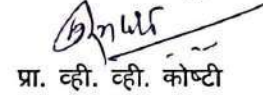 प्रा. व्ही. व्ही. कोष्टी